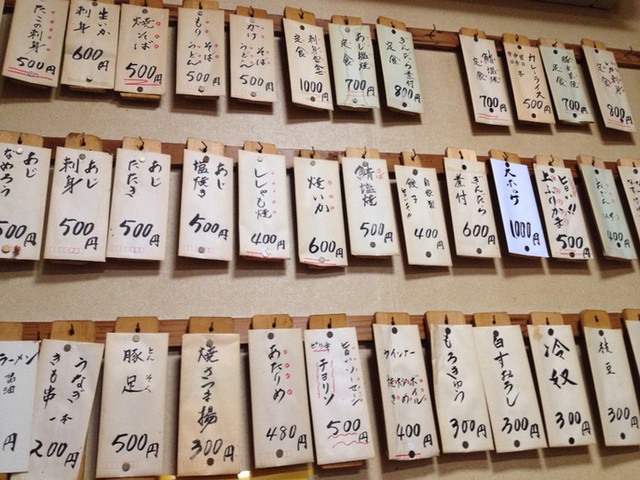 たこの刺身 500円
生いか刺身 600円
焼そば 500円
もりそばうどん 500円
かけそばうどん 500円
刺身盛合定食 1000円
あじ塩焼定食 700円
ぎんだら煮付 800円
鯖塩焼定食 700円
カレーライス 500円
定食 700円
さしみ定食 800円
あじなめろう 500円
あじ刺身 500円
あじたたき 500円
あじ塩焼き 500円
ししゃも焼 400円
焼いか 600円
鯖塩焼 500円
自家製餃子 400円
ぎんだら煮付 600円
大ホッケ 1000円
500円
400円
ラーメン 醤油 円
うなぎきも串 一本 200円
豚足 とんそく 500円
焼さつま揚 300円
あたりめ 480円
ピリ辛チョリソ 旨いソーセージ 500円
ウインナー 焼 ボイル 400円
もろきゅう 300円
白すおろし 300円
冷奴 300円
枝豆 300円